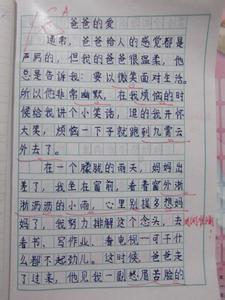 爸爸的爱
通常，爸爸给人的感觉都是
严厉的，但我的爸爸很温柔，他
总是告诉我：要以微笑面对生活。
所以他非常幽默，在我烦恼的时
候给我讲个小笑话，果的我开怀
大笑，烦恼一下子就跑到九霄云
外去了。
在一个朦胧的雨天，妈妈出
差了，我坐在窗前，看着窗外淅
淅沥沥的小雨，心里别提多想妈
妈了，我努力排解这个念头，去
看书、写作业、看电视一可干什
么都不起劲儿。这时候，爸爸走
了过来，他见我一副愁眉苦脸的